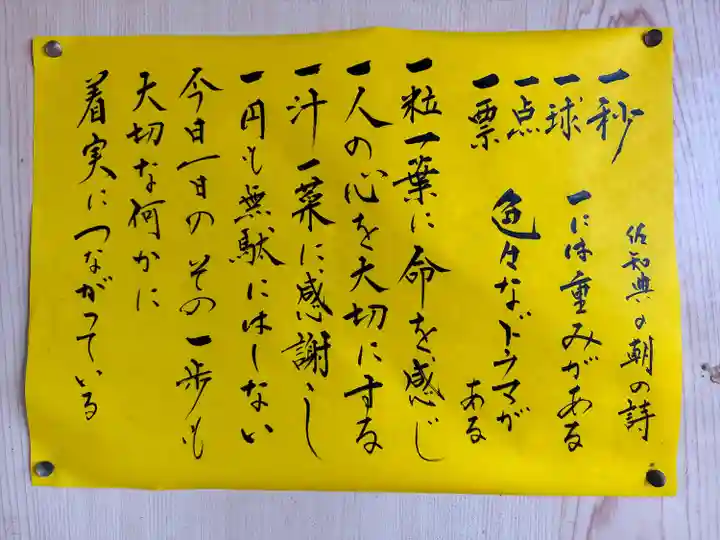 佐知典の朝の詩
一秒
一球
一点
一票
一には重みがある
色々なドラマがある
一粒一葉に命を感じ
一人の心を大切にする
一汁一菜に感謝し
一円も無駄にはしない
今日一日のその一歩も
大切な何かに
着実につながっている